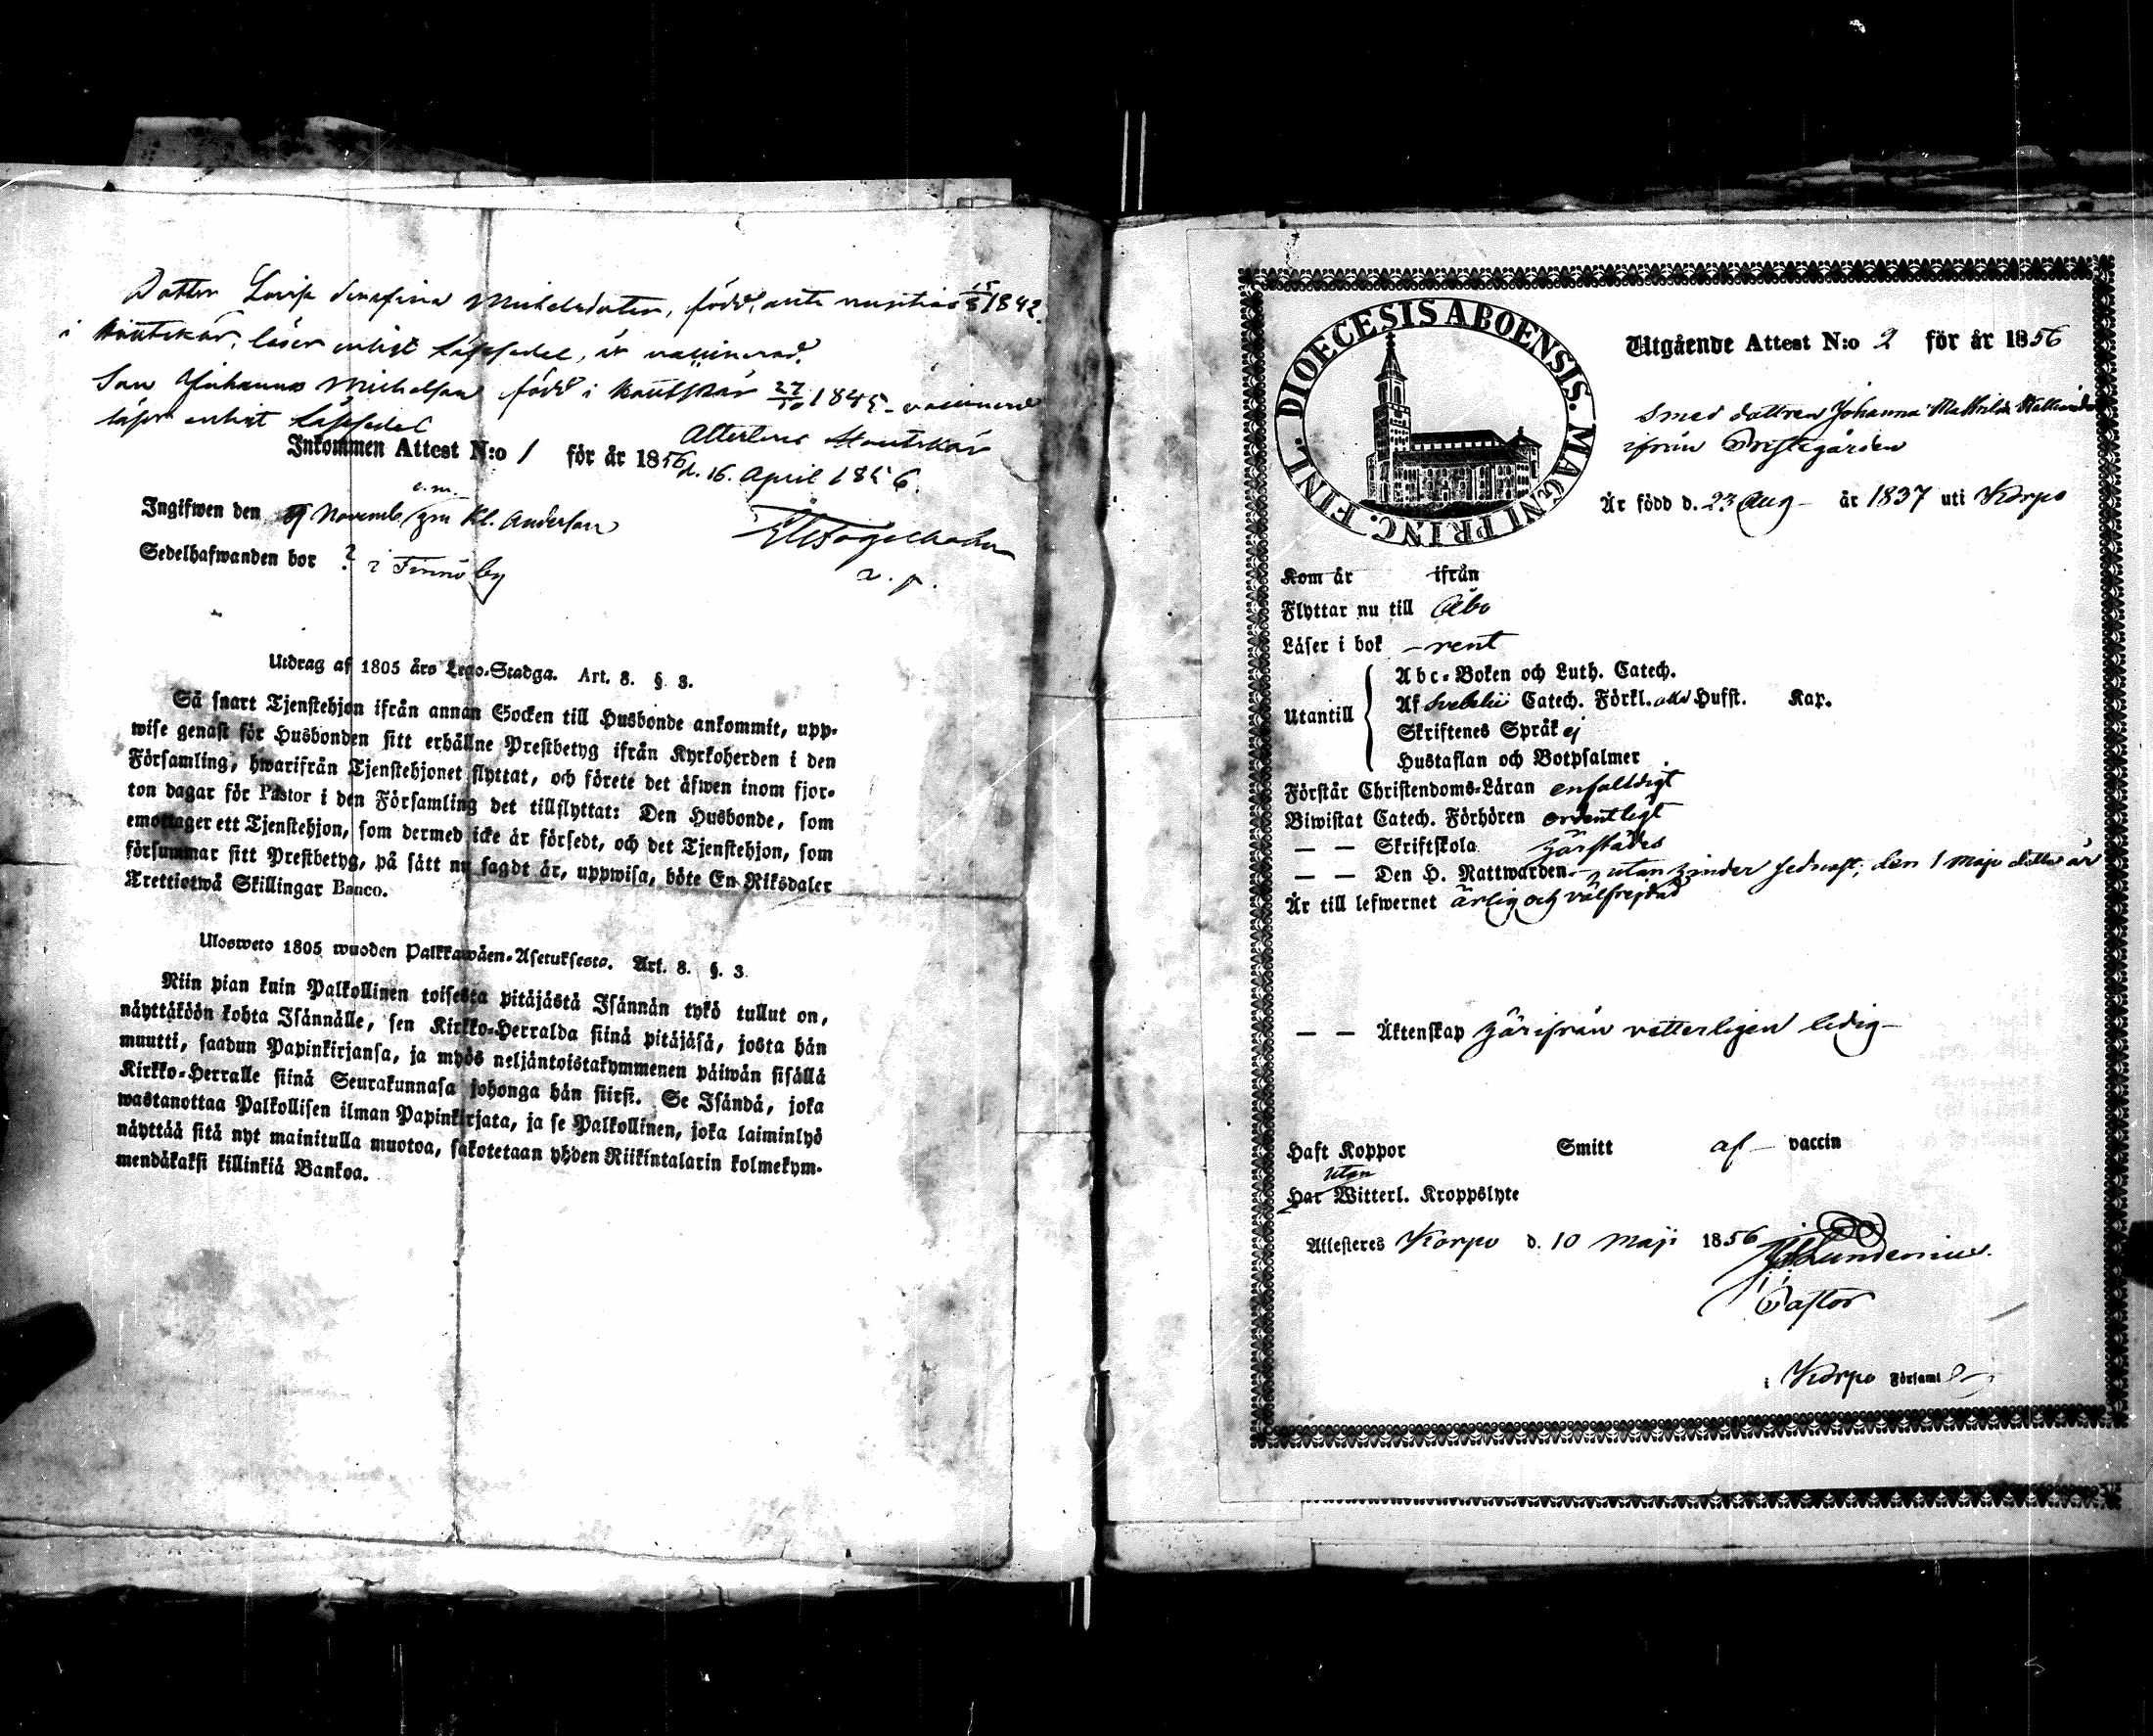 Dotter Lovisa Serafina Michelsdotter, född ante nuptias 15/8 1842.
i Houtskär, läser enligt läsesedel, är vaccinerad.
Son Johannes Michelsson född i Houtskär 27/10 1845 - vaccinerad
läser enligt läsesedel
Attesteras Houtskär
d. 16. April 1856.
Inkommen Attest N:o 1 för år 1856
e.m.
Ingifwen den 9 Novemb. Kl. Anderson
Sedelhafwanden bor ? i Finnö by
v. p.
Utdrag af 1805 års Lego-Stadga. Art. 8. § 3.
Så snart Tjenstehjon ifrån annan Socken till Husbonde ankommit, upp-
wise genast för Husbonden sitt erhållne Prestbetyg ifrån Kyrkoherden i den
Församling, hwarifrån Tjenstehjonet flyttat, och förete det äfwen inom fjor-
ton dagar för Pastor i den Församling det tillflyttat: Den Husbonde, som
emottager ett Tjenstehjon, som dermed icke är försedt, och det Tjenstehjon, som
försummar sitt Prestbetyg, på sätt nu sagdt är, uppwisa, böte En Riksdaler
Trettiotwå Skillingar Banco.
Ulosweto 1805 wuoden Palkkawäen-Asetuksesta. Art. 8. §. 3
Niin pian kuin Palkollinen toisesta pitäjästä Isännän tykö tullut on,
näyttäköön kohta Isännälle, sen Kirkko-Herralda siinä pitäjäsä, josta hän
muutti, saadun Papinkirjansa, ja myös neljäntoistakymmenen päiwän sisällä
Kirkko-Herralle siinä Seurakunnasa johonga hän siirsi. Se Isändä, joka
wastanottaa Palkollisen ilman Papinkirjata, ja se Palkollinen, joka laiminlyö
näyttää sitä nyt mainitulla muotoa, sakotetaan yhden Riikintalarin kolmekym-
mendäkaksi killinkiä Bankoa.
DIOECESIS ABOENSIS. MAGNI PRINC. FINL.
Utgående Attest N:o 2 för år 1856
Smed dottren Johanna Mathilda
ifrån Prestegården
Är född d. 23 Aug - år 1837 uti Korpo
Kom år ifrån
Flyttar nu till Åbo
Läser i bok - rent
Utantill
Abc-Boken och Luth. Catech.
Af Svebelii Catech. Förkl. alla Hufst. Kap.
Skriftenes Språk ej
Hustaflan och Botpsalmer
Förstår Christendoms-Läran enfaldigt
Biwistat Catech. Förhören ordentligt
— — Skriftskola härstädes
— — Den H. Nattwarden - utan hinder sednast, den 1 Maji detta år
Är till lefwernet ärlig och välfrejdad
— — Äktenskap härifrån vetterligen ledig -
Haft Koppor Smitt af - vaccin
utan
Har Witterl. Kroppslyte
Attesteres Korpo d. 10 Maji 1856
Lundenius.
Pastor
i Korpo Förs aml